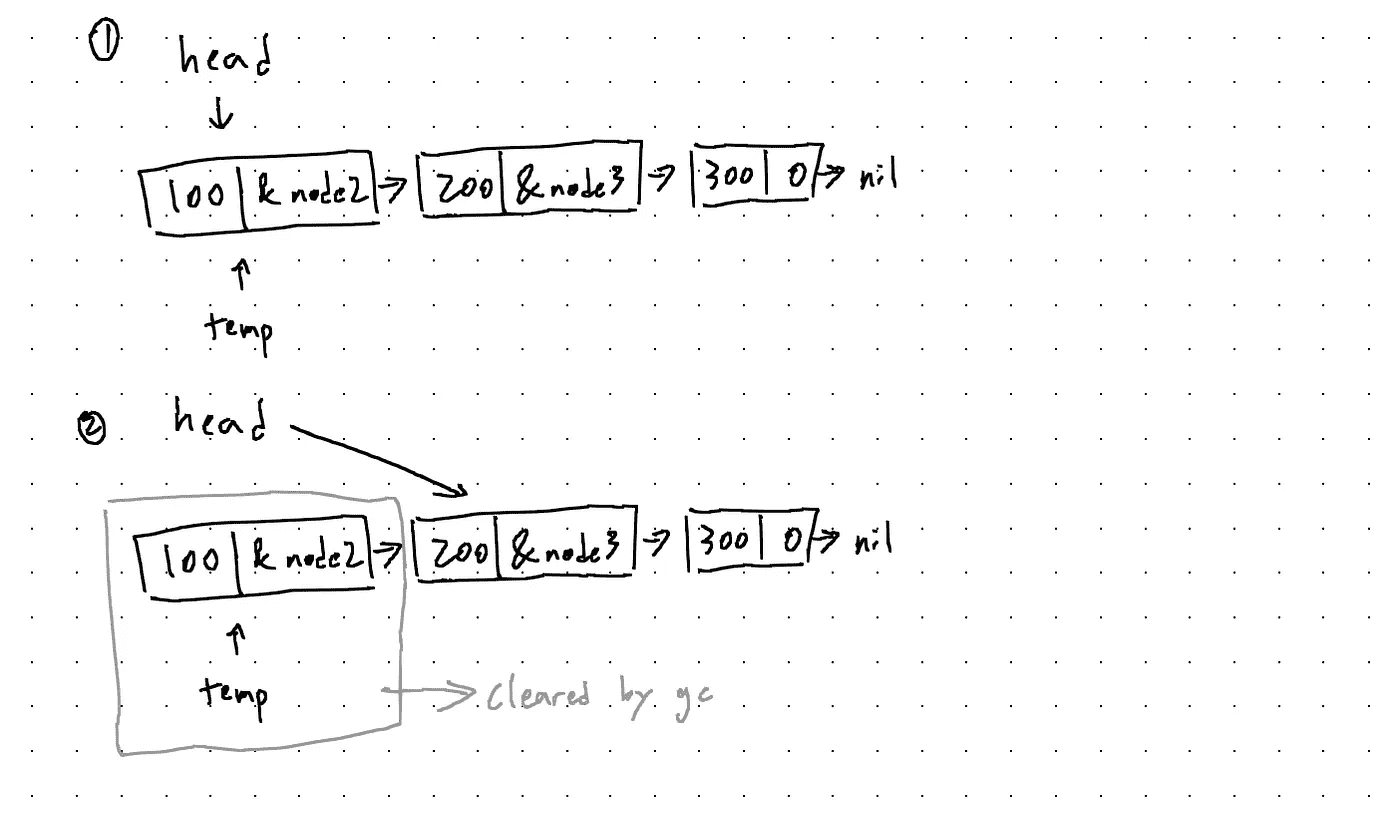 ① head
100 & node2 → 200 &node3 → 300 0 → nil
temp
② head
100 & node2 → 200 &node3 → 300 0 → nil
temp
→ cleared by gc